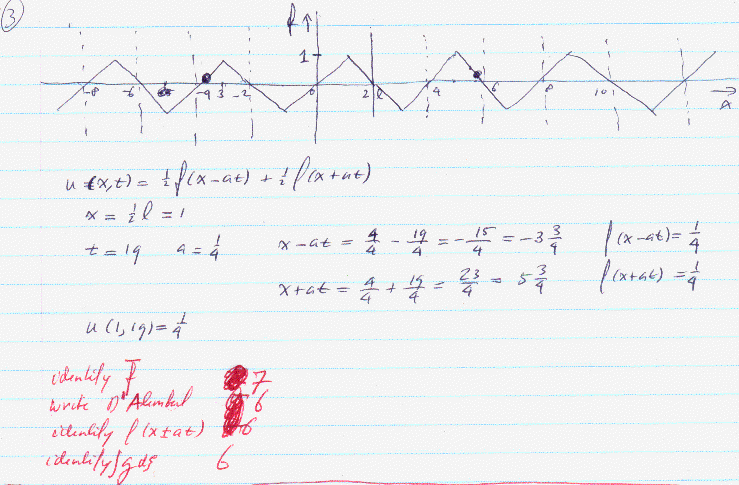 3
f
1
-8 -6 -4 3 -2 0 2 l 4 6 8 10 x
u(x,t) = ½ f(x-at) + ½ f(x+at)
x = ½ l = 1
t = 19 a = 1/4 x-at = 4/4 - 19/4 = -15/4 = -3 3/4 f(x-at) = 1/4
x+at = 4/4 + 19/4 = 23/4 = 5 3/4 f(x+at) = 1/4
u(1,19) = 1/4
identify f̄ 7
write D'Alembert 6
identify f(x±at) 6
identify ∫g dξ 6